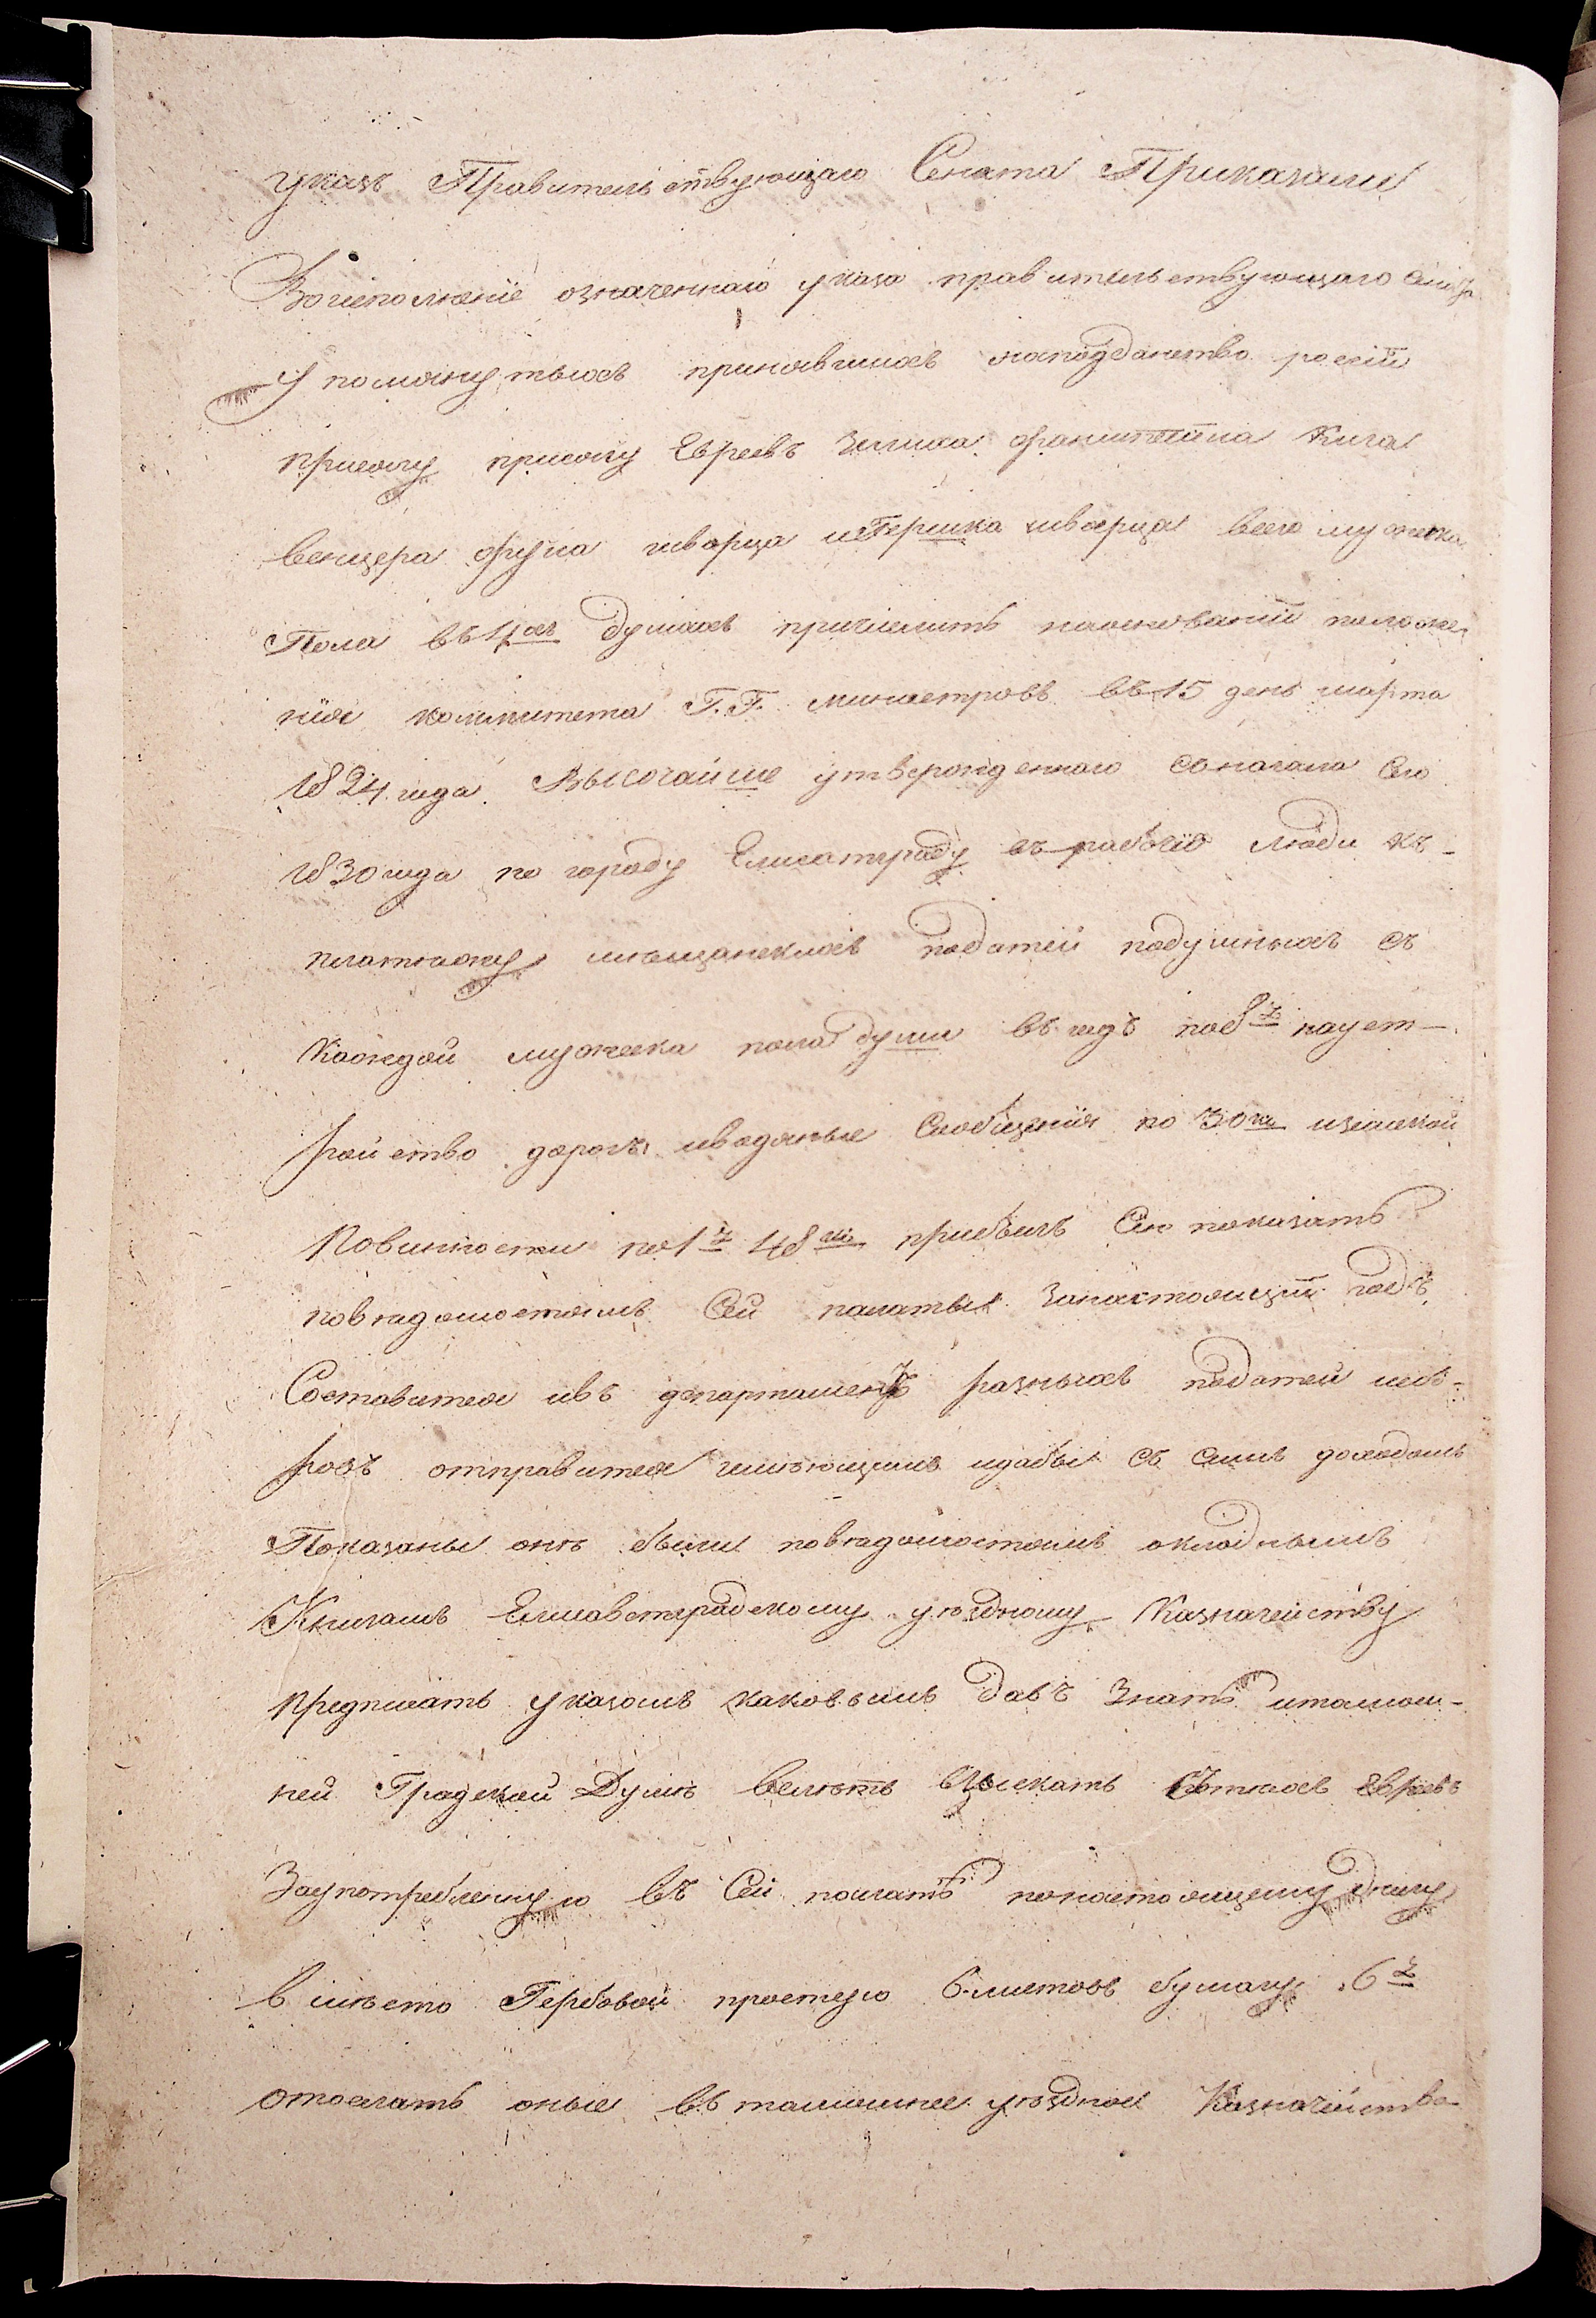 указъ Правительствующаго Сената Приказали
Воисполненіе означеннаго указа правительствующаго Сената
упомянутыхъ принявшихъ наподданство россіи
присягу присягу Евреевъ Зелика
венцера шварца иГершка шварца всего мужеска
Пола въ 4хъ душахъ причислить наоснованіи положе
нія коммитета Г.Г. министровъ въ 15 день марта
1824 года Высочайше утвержденнаго сначала Сего
1830 года по городу Елисатграду въ рабочіе люди къ-
платежу мещанскихъ податей подушныхъ съ
Каждой мужеска пола души въ годъ по 8 р науст-
ройство дорогъ иводяные Сообщенія по 30 ко иземской
Повинности по 1 р 48 ко прибыль Сію показать
повѣдомостямъ Сей палаты Занастоящій годъ
Составится ивъ департаментъ разныхъ податей исбо-
ровъ отправится имѣющимъ идабы съ симъ доходомъ
Показаны онѣ были повѣдомостямъ окладнымъ
Книгамъ Елисаветградскому уѣздному Казначейству
предписать указомъ каковымъ давъ Знать итамош-
ней Градской Думѣ велѣть взыскать Сътѣхъ Евреевъ
Заупотребленную въ Сей палатѣ понастоящему дѣлу
вмѣсто Гербовой простую 6 листовъ бумагу 6 р
отослать оные въ тамошнее уѣздное Казначейство